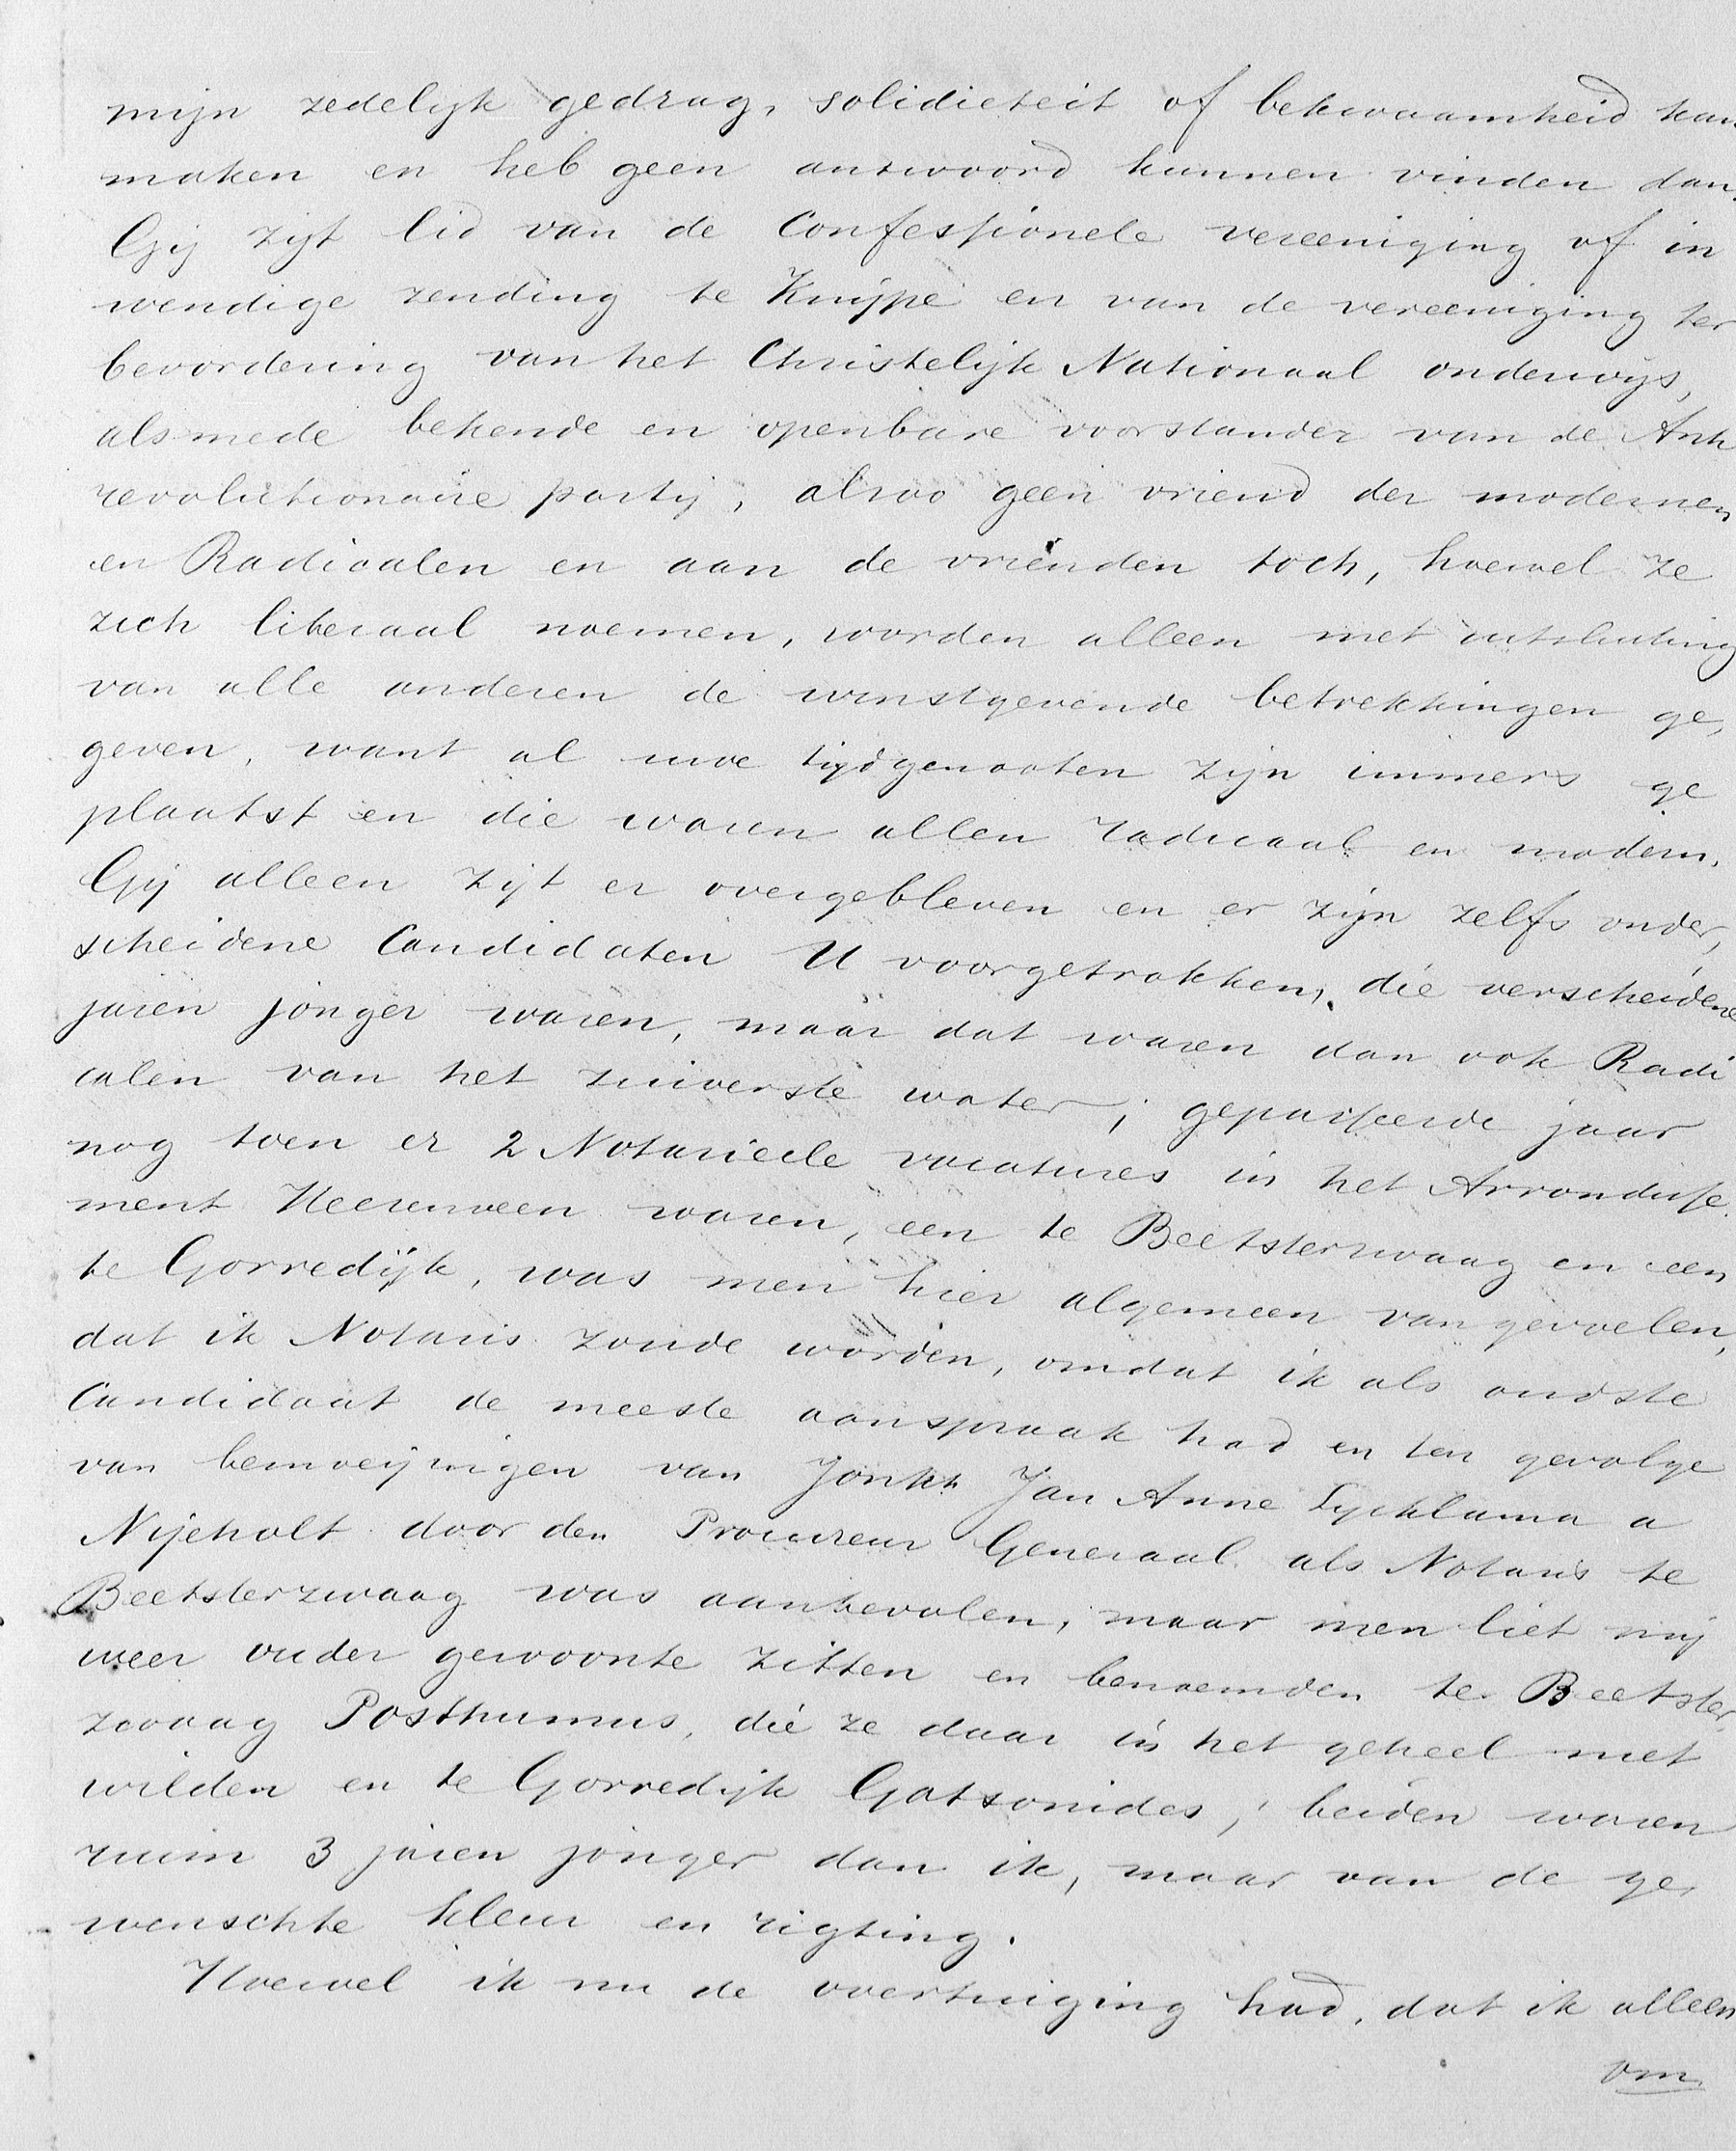 mijn zedelijk gedrag, solidieteit of bekwaamheid kan
maken en heb geen antwoord kunnen vinden dan.
Gij zijt lid van de Confessionele vereeniging of in
wendige zending te Knijpe en van de vereeniging ter
bevordering van het Christelijk Nationaal onderwijs,
alsmede bekende en openbare voorstander van de Anti
revolutionaire partij, alzoo geen vriend der modernen
en Radicalen en aan de vrienden toch, hoewel ze
zich liberaal noemen, worden alleen met uitsluiting
van alle anderen de winstgevende betrekkingen ge,
geven, want al uwe tijdgenooten zijn immers ge
plaatst en die waren allen radicaal en modern.
Gij alleen zijt er overgebleven en er zijn zelfs onder,
scheidene Candidaten U voorgetrokken, die verscheidene
jaren jonger waren, maar dat waren dan ook Radi
calen van het zuiverste water; gepasseerde jaar
nog toen er 2 Notarieele vacatures in het Arrondisse
ment Heerenveen waren, een te Beetsterzwaag en een
te Gorredijk, was men hier algemeen van gevoelen,
dat ik Notaris zoude worden, omdat ik als oudste
Candidaat de meeste aanspraak had en ten gevolge
van bemoeijingen van Jonkh Jan Anne Lycklama a
Nijeholt door den Procureur Generaal als Notaris te
Beetsterzwaag was aanbevolen, maar men liet mij
weer ouder gewoonte zitten en benoemden te Beetster,
zwaag Posthumus, die ze daar in het geheel niet
wilden en te Gorredijk Gatsonides; beiden waren
ruim 3 jaren jonger dan ik, maar van de ge,
wenschte kleur en rigting.
Hoewel ik nu de overtuiging had, dat ik alleen
om